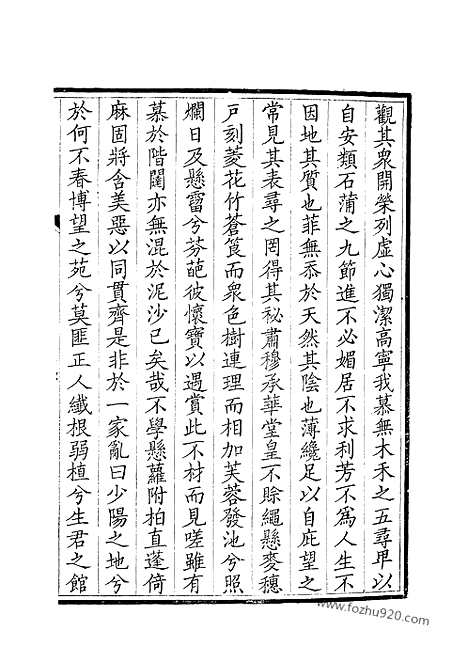 觀其衆開榮列虛心獨潔高寧我慕無木禾之五尋卑以
自安類石蒲之九節進不必媚居不求利芳不爲人生不
因地其質也菲無忝於天然其陰也薄纔足以自庇望之
常見其表尋之罔得其祕肅穆承華堂皇不賒繩懸麥穗
戸刻菱花竹蒼筤而衆色樹連理而相加芙蓉發池兮照
爛日及懸霤兮芬葩彼懷寶以遇賞此不材而見嗟雖有
慕於階闥亦無混於泥沙已矣哉不學懸蘿附柏直蓬倚
麻固將含美惡以同貫齊是非於一家亂曰少陽之地兮
於何不春博望之苑兮莫匪正人纎根弱植兮生君之館
www.fozhu920.com